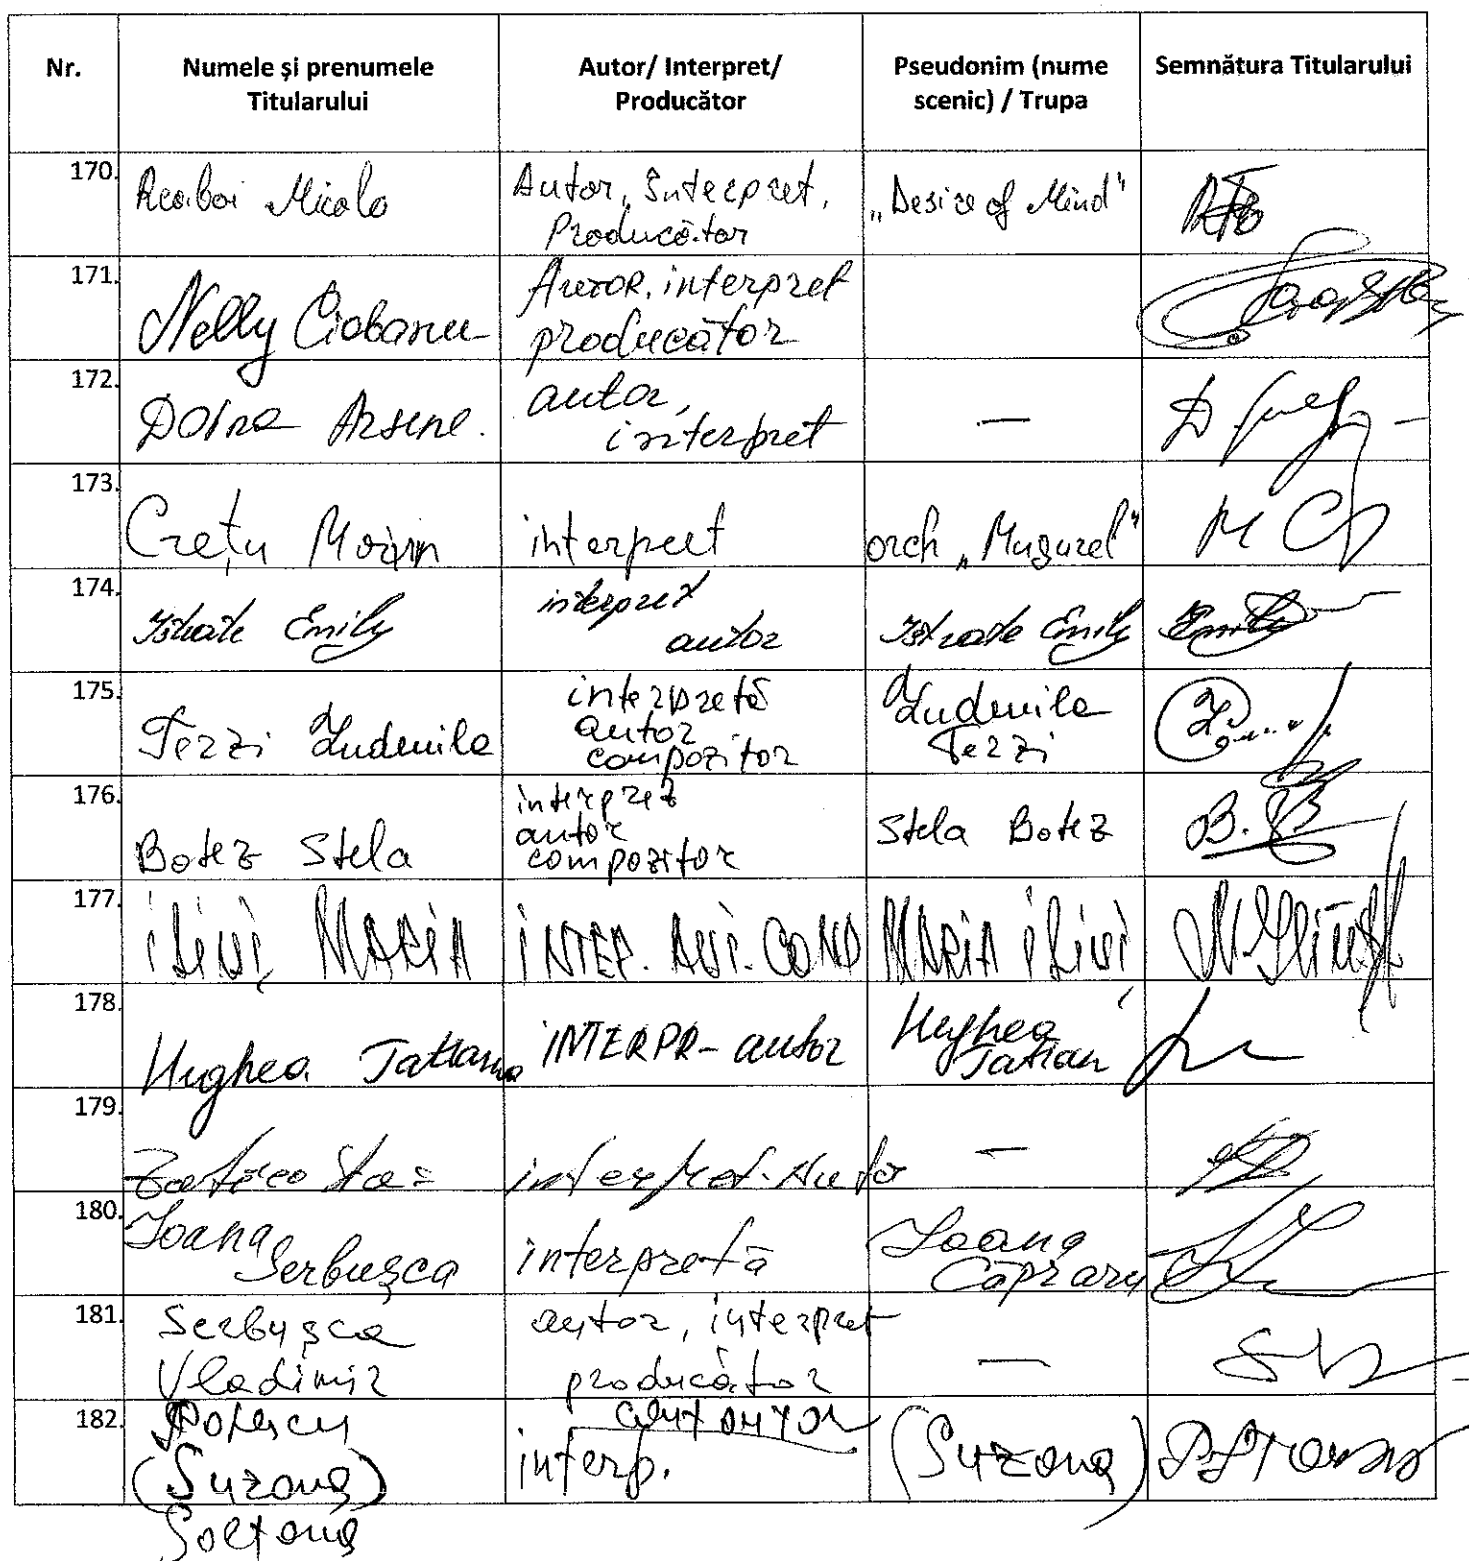 Nr. Numele și prenumele Titularului Autor/ Interpret/ Producător Pseudonim (nume scenic) / Trupa Semnătura Titularului
170. Micola Autor, Interpret, Producător „Desire of Mind"
171. Nelly Ciobanu Autor, interpret producător
172. Doina Arsene. autor, interpret —
173. Crețu Marin interpret orch „Mugurel"
174. Istrate Emily interpret autor Istrate Emily Emily
175. Terzi Ludmila interpretă autor compozitor Ludmila Terzi
176. Botez Stela interpret autor compozitor Stela Botez B.
177. iLiuț MARiA iNTER. AUT. COMP MARiA iLiuț
178. Tatiana iNTERPR- autor Tatian
179. interpret. Auto —
180. Ioana Serbușca interpretă Ioana Căpraru
181. Serbușca Vladimir autor, interpret producător —
182. (Suzana) Soltana autor interp. (Suzana)